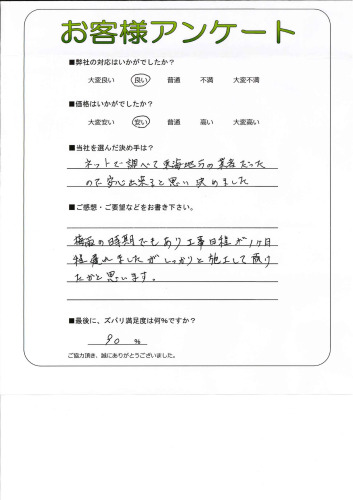 お客様アンケート
■弊社の対応はいかがでしたか？
大変良い 良い 普通 不満 大変不満
■価格はいかがでしたか？
大変安い 安い 普通 高い 大変高い
■当社を選んだ決め手は？
ネットで調べて東海地方の業者だった
ので安心出来ると思い決めました
■ご感想・ご要望などをお書き下さい。
梅雨の時期でもあり工事日程が1ヶ月
程遅れましたがしっかりと施工して頂け
たかと思います。
■最後に、ズバリ満足度は何％ですか？
90 ％
ご協力頂き、誠にありがとうございました。